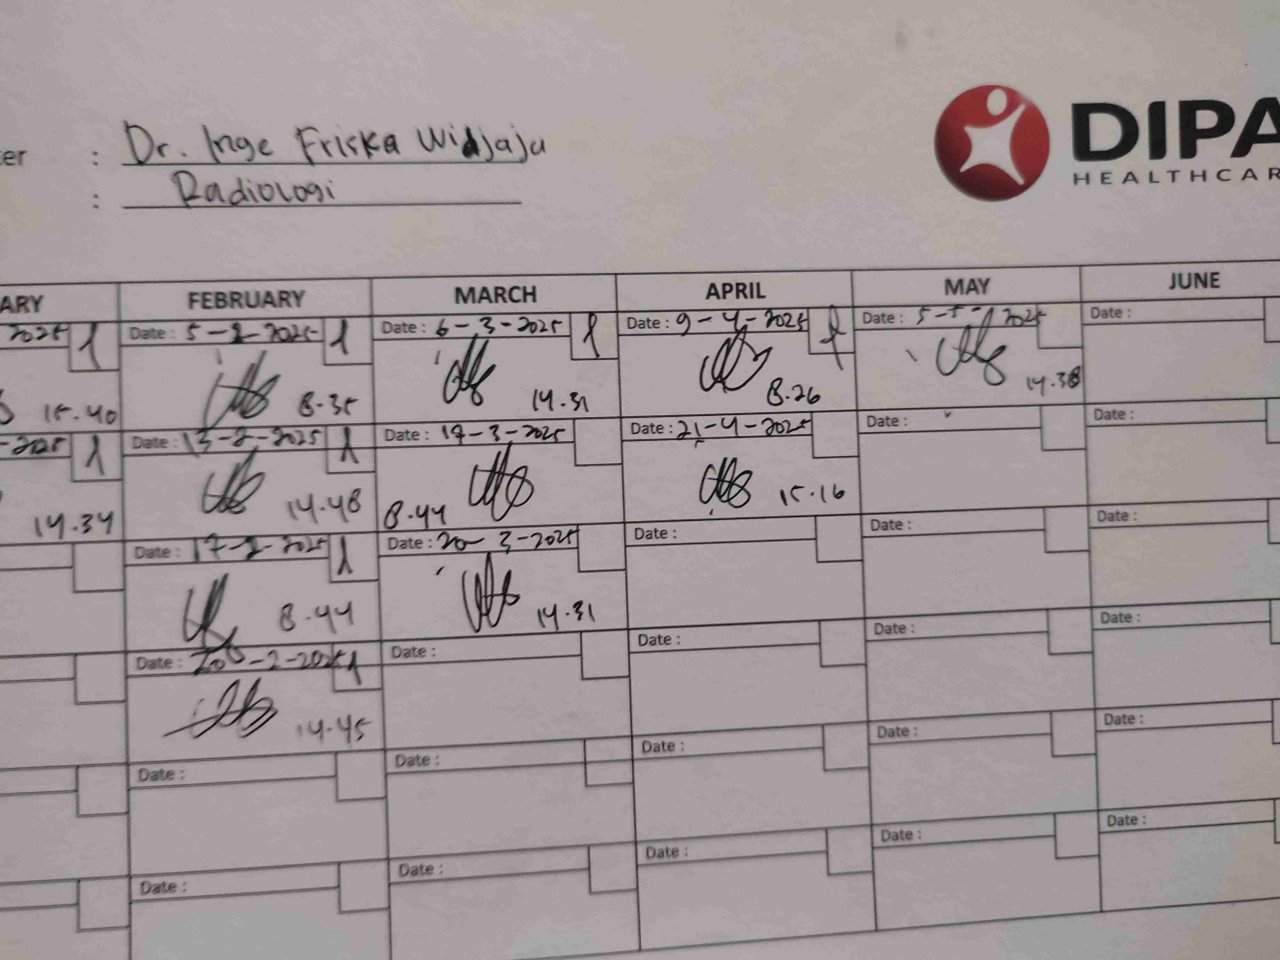 : Dr. Inge Friska Widjaja
: Radiologi
DIPA
HEALTHCAR
ARY FEBRUARY MARCH APRIL MAY JUNE
2025 Date : 5-2-2025 Date : 6-3-2025 Date : 9-4-2025 Date : 5-5-2025 Date :
15.40 8.35 14.31 8.26 14.38
2025 Date : 13-2-2025 Date : 17-3-2025 Date : 21-4-2025 Date : Date :
14.34 14.48 8.44 15.16
Date : 17-2-2025 Date : 20-3-2025 Date : Date : Date :
8.44 14.31
Date : 20-2-2025 Date : Date : Date : Date :
14.45
Date : Date : Date : Date : Date :
Date : Date : Date : Date : Date :